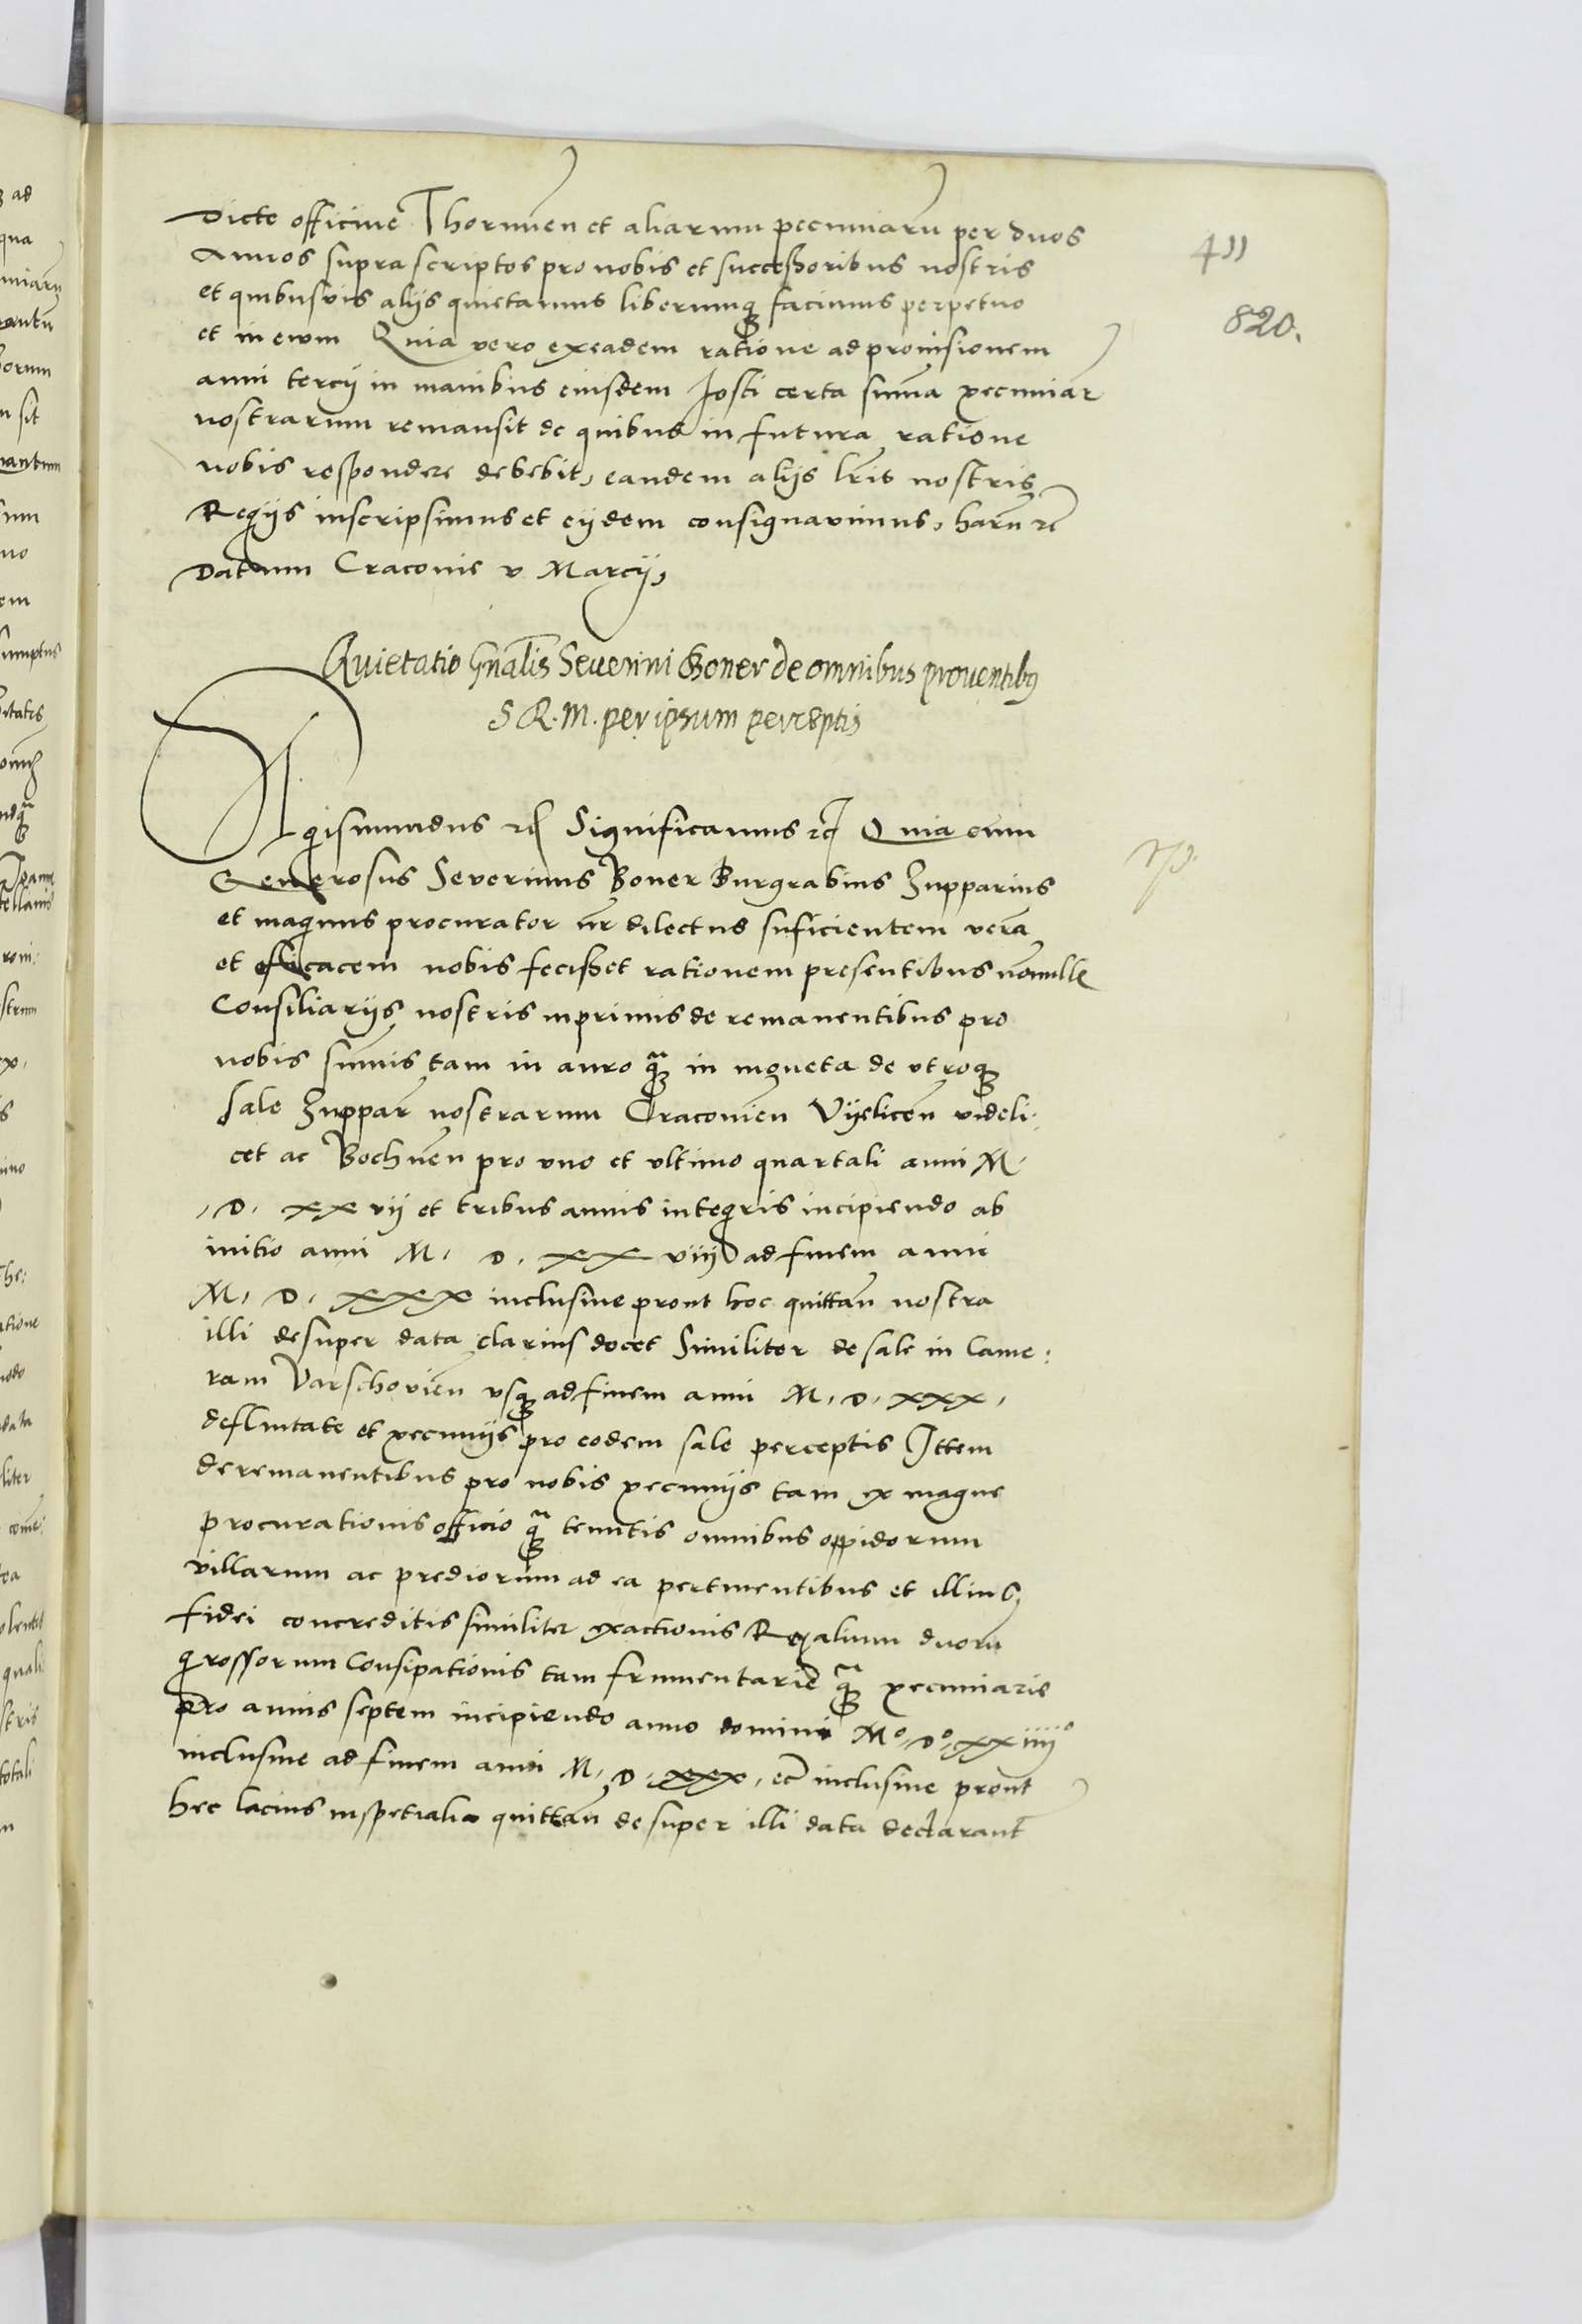 Dicte officine Thorunen et aliarum pecuniaru per duos
Annos suprascriptos pro nobis et successoribus nostris
et quibusvis alijs quietamus liberumq facimus perpetuo
et in ewm Quia vero ex eadem ratione ad provisionem
anni tercij in manibus eiusdem Josti certa suma pecuniar
nostrarum remansit de quibus in futura ratione
nobis respondere debebit, eandem alijs lris nostris
Regijs inscripsimus et eijdem consignavimus, haru rc
Datum Cracovie v Marcij,
411
820.
Quietatio Gnalis Severini Boner de omnibus proventibus
S R. M. per ipsum perceptis
Sigismundus rc Significamus rc Quia cum
Generosus Severinus Boner Burgrabius Zupparius
et magnus procurator nr dilectus suficientem vera
et efficacem nobis fecisset rationem presentibus nonulle
Consiliarijs nostris inprimis de remanentibus pro
nobis sumis tam in auro qua in moneta de utroq
sale Zuppar nostrarum Cracovien Vijelicen videli
cet ac Bochnen pro uno et ultimo quartali anni M.
. D. xx vij et tribus annis integris incipiendo ab
initio anni M. D. xx viij ad finem anni
M. D. xxx inclusive prout hoc quittan nostra
illi desuper data clarius docet Similiter de sale in Came:
ram Varschovien usq ad finem anni M. D. xxx.
defluitate et pecunijs pro eodem sale perceptis Ittem
de remanentibus pro nobis pecunijs tam ex magne
procurationis officio qua tenutis omnibus oppidorum
villarum ac prediorum ad ea pertinentibus et illius
fidei concreditis similiter exactionis Regalium duoru
grossorum Consipationis tam frumentarie qua pecuniarie
pro annis septem incipiendo anno domini Mo. Do. xx iiijo
inclusive ad finem anni M. D. xxx. ec inclusive prout
hec lacius in spetiali quittan desuper illi data declarant